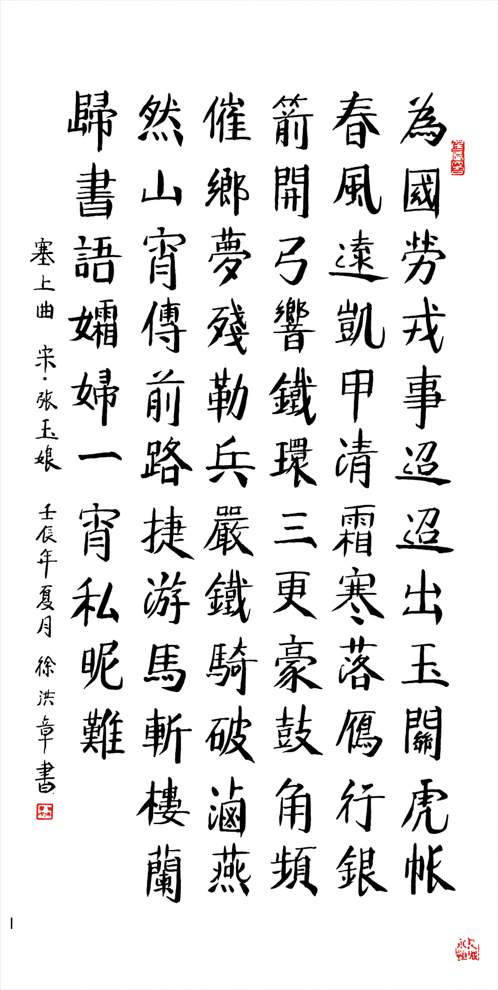 為國勞戎事迢迢出玉關虎帳
春風遠凱甲清霜寒落鴈行銀
箭開弓響鐵環三更豪鼓角頻
催鄉夢殘勒兵嚴鐵騎破滷燕
然山宵傳前路捷游馬斬樓蘭
歸書語孀婦一宵私昵難
塞上曲 宋·張玉娘 壬辰年夏月 徐洪章書